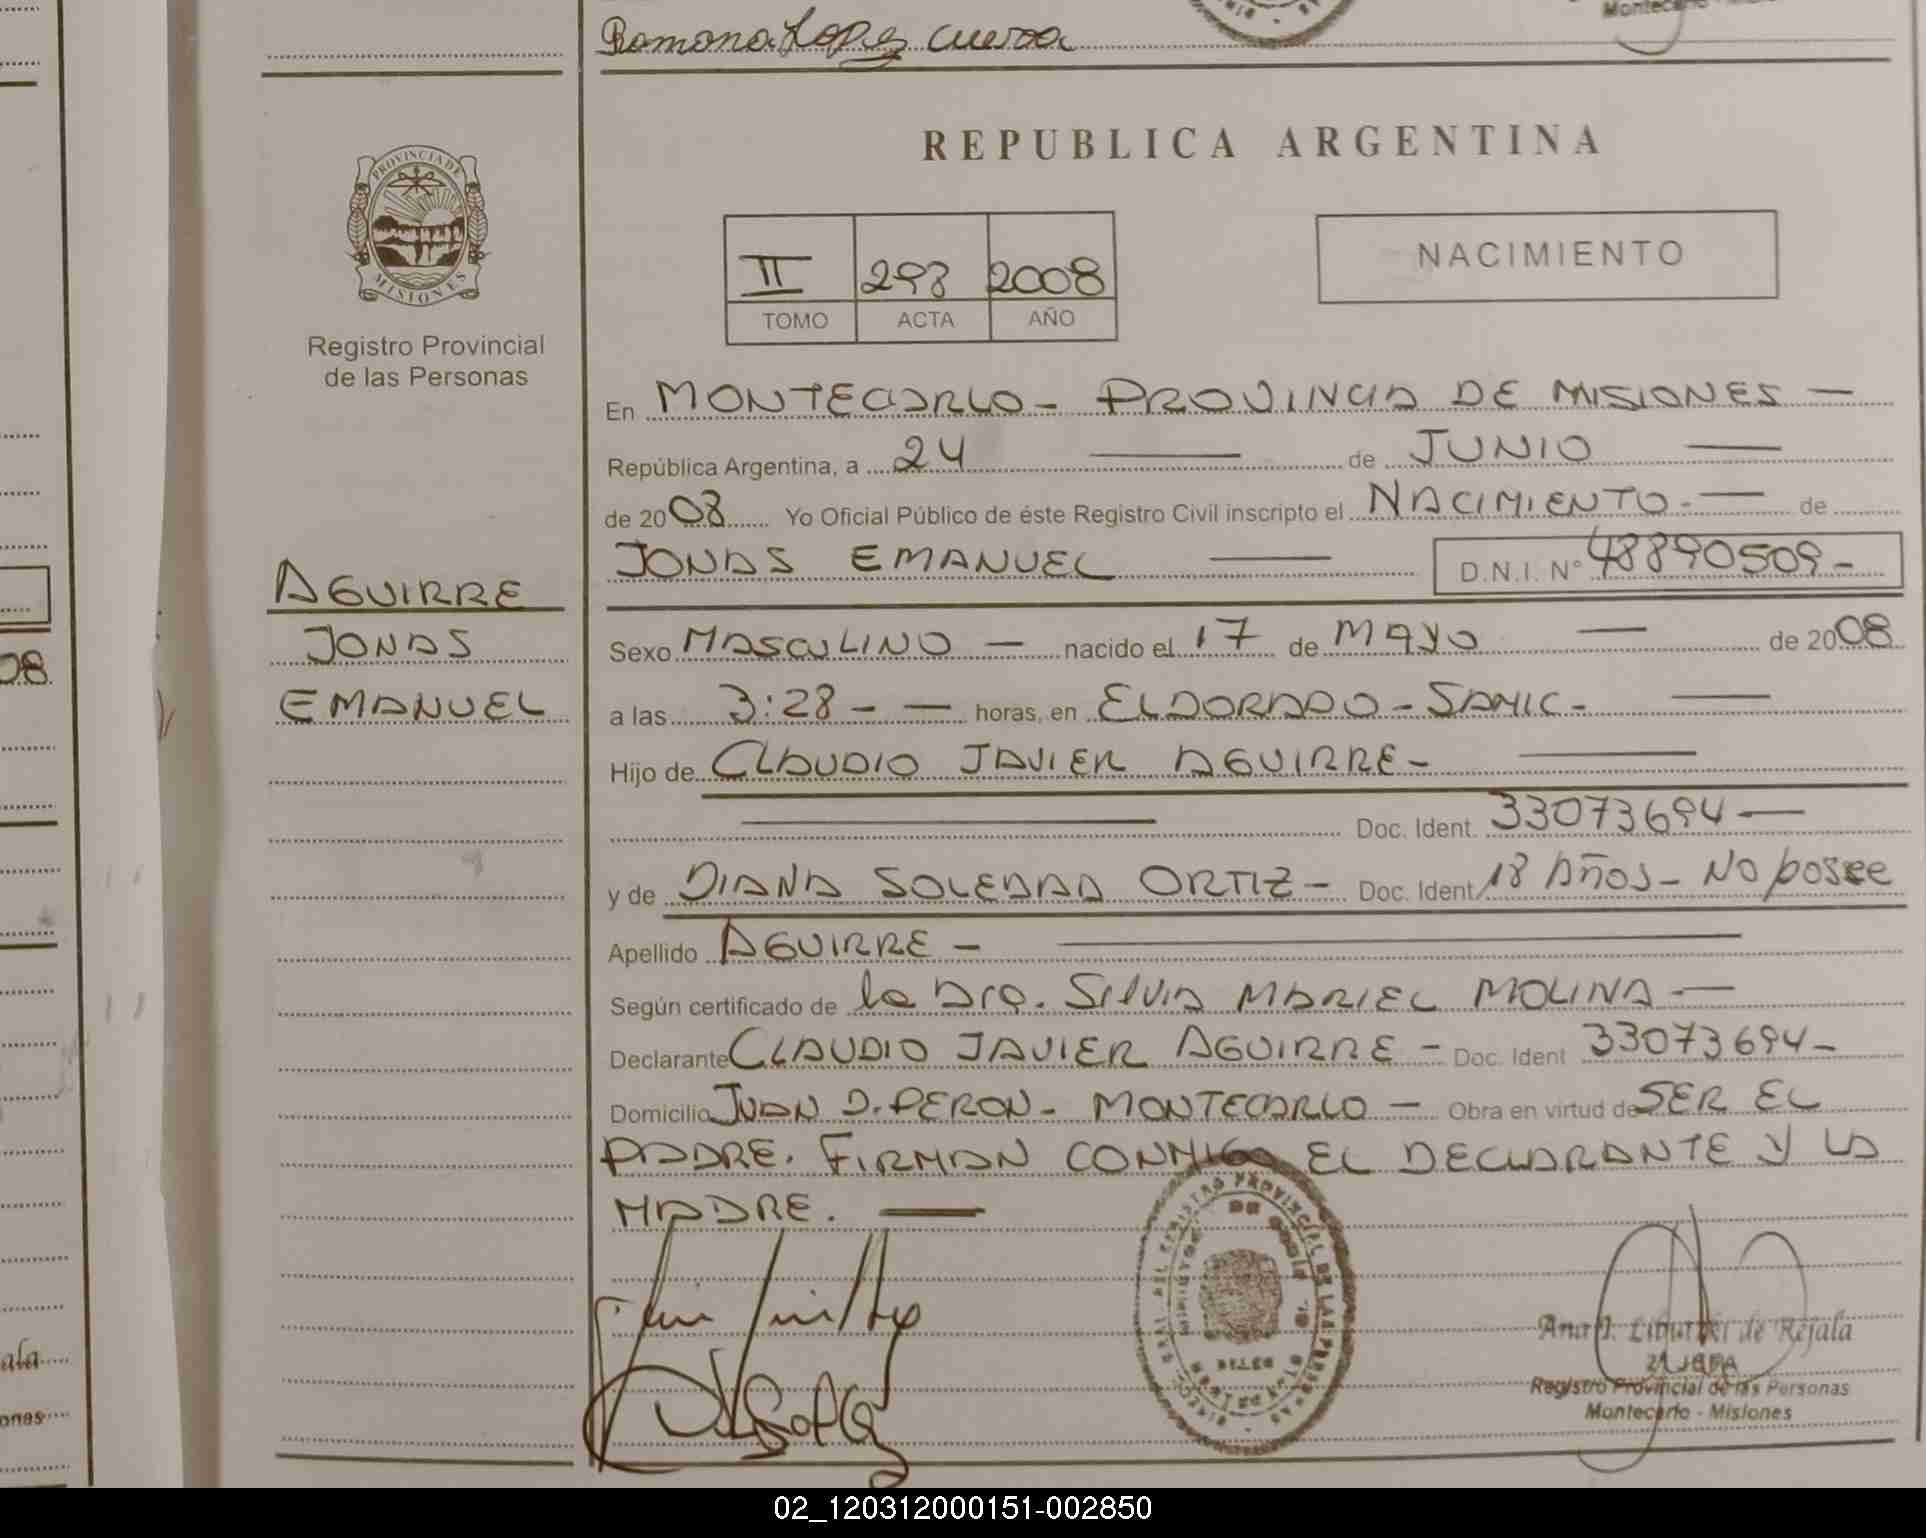 Ramona Lopez Cuenca
PROVINCIA DE
MISIONES
Registro Provincial
de las Personas
REPUBLICA ARGENTINA
II 293 2008
TOMO ACTA AÑO
NACIMIENTO
En MONTECARLO - PROVINCIA DE MISIONES —
República Argentina, a 24 — de JUNIO —
de 2008 Yo Oficial Público de éste Registro Civil inscripto el NACIMIENTO - — de
JONAS EMANUEL — D.N.I. N° 48890509 -
AGUIRRE
JONAS
EMANUEL
Sexo MASCULINO — nacido el 17 de MAYO — de 2008
a las 3:28 - — horas, en ELDORADO - SAMIC - —
Hijo de CLAUDIO JAVIER AGUIRRE - —
— Doc. Ident. 33073694 —
y de DIANA SOLEDAD ORTIZ - Doc. Ident 18 AÑOS - NO posee
Apellido AGUIRRE - —
Según certificado de la Dra. SILVIA MARIEL MOLINA —
Declarante CLAUDIO JAVIER AGUIRRE - Doc. Ident 33073694 -
Domicilio JUAN D. PERON - MONTECARLO - Obra en virtud de SER EL
PADRE. FIRMAN CONMIGO EL DECLARANTE Y LA
MADRE. —
Registro Provincial de las Personas
Montecarlo - Misiones
08
ala
ones
02_120312000151-002850